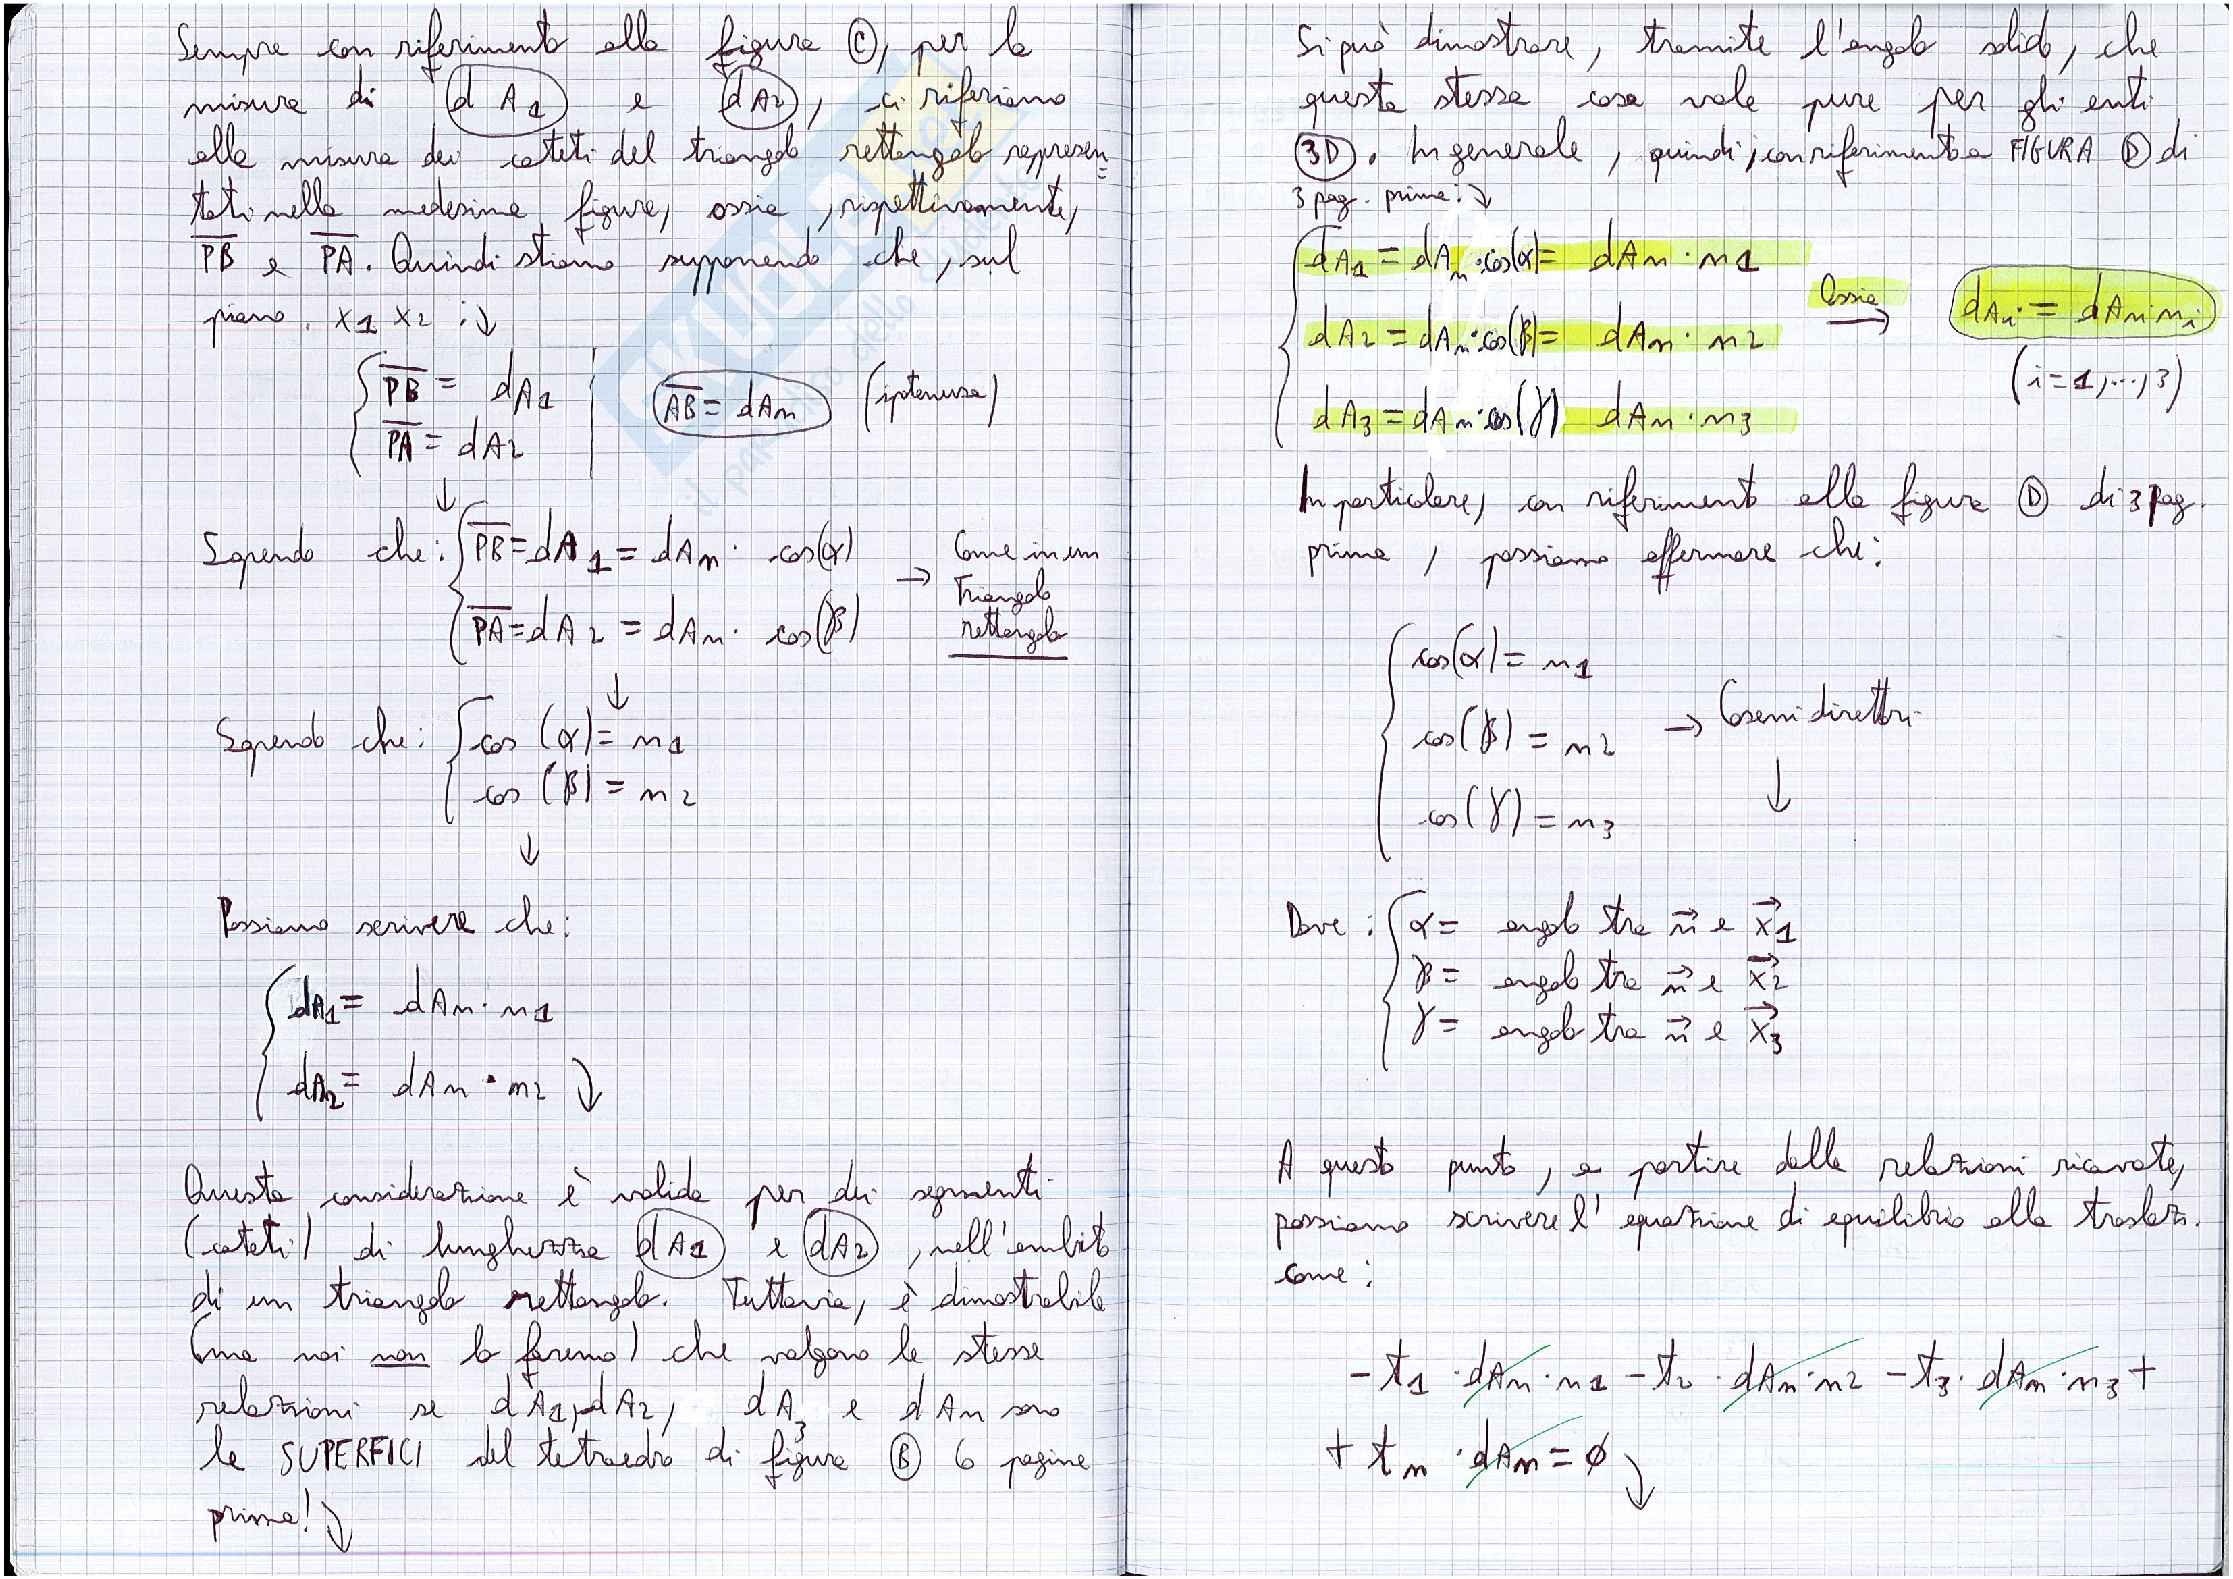 Sempre con riferimento alla figura Ⓒ, per la
misura di dA1 e dA2, ci riferiamo
alla misura dei cateti del triangolo rettangolo represen=
tati nella medesima figura, ossia, rispettivamente,
P̅B̅ e P̅A̅. Quindi stiamo supponendo che, sul
piano x1 x2 :↘
{ P̅B̅ = dA1
P̅A̅ = dA2
A̅B̅ = dAn (ipotenusa)
↓
Sapendo che: { P̅B̅ = dA1 = dAn · cos(α)
P̅A̅ = dA2 = dAn · cos(β)
→ Come in un
triangolo
rettangolo
↓
Sapendo che: { cos (α) = n1
cos (β) = n2
↓
Possiamo scrivere che:
{ dA1 = dAn · n1
dA2 = dAn · n2 ↘
Questa considerazione è valida per dei segmenti
(cateti) di lunghezza dA1 e dA2, nell'ambito
di un triangolo rettangolo. Tuttavia, è dimostrabile
(ma noi non lo faremo) che valgono le stesse
relazioni se dA1, dA2, dA3 e dAn sono
le SUPERFICI del tetraedro di figura Ⓑ 6 pagine
prima! ↘
Si può dimostrare, tramite l'angolo solido, che
questa stessa cosa vale pure per gli enti
3D. In generale, quindi, con riferimento a FIGURA Ⓓ di
3 pag. prima: ↘
{ dA1 = dAn · cos(α) = dAn · n1
dA2 = dAn · cos(β) = dAn · n2
dA3 = dAn · cos(γ) dAn · n3
Ossia
→
dAi = dAn · ni
(i=1,...,3)
In particolare, con riferimento alla figura Ⓓ di 3 pag.
prima, possiamo affermare che:
{ cos(α) = n1
cos(β) = n2
cos(γ) = n3
→ Coseni direttori
↓
Dove: { α = angolo tra n⃗ e x⃗1
β = angolo tra n⃗ e x⃗2
γ = angolo tra n⃗ e x⃗3
A questo punto, a partire dalle relazioni ricavate,
possiamo scrivere l'equazione di equilibrio alla traslaz.
come:
- t1 · dAn · n1 - t2 · dAn · n2 - t3 · dAn · n3 +
+ tn · dAn = ∅ ↘